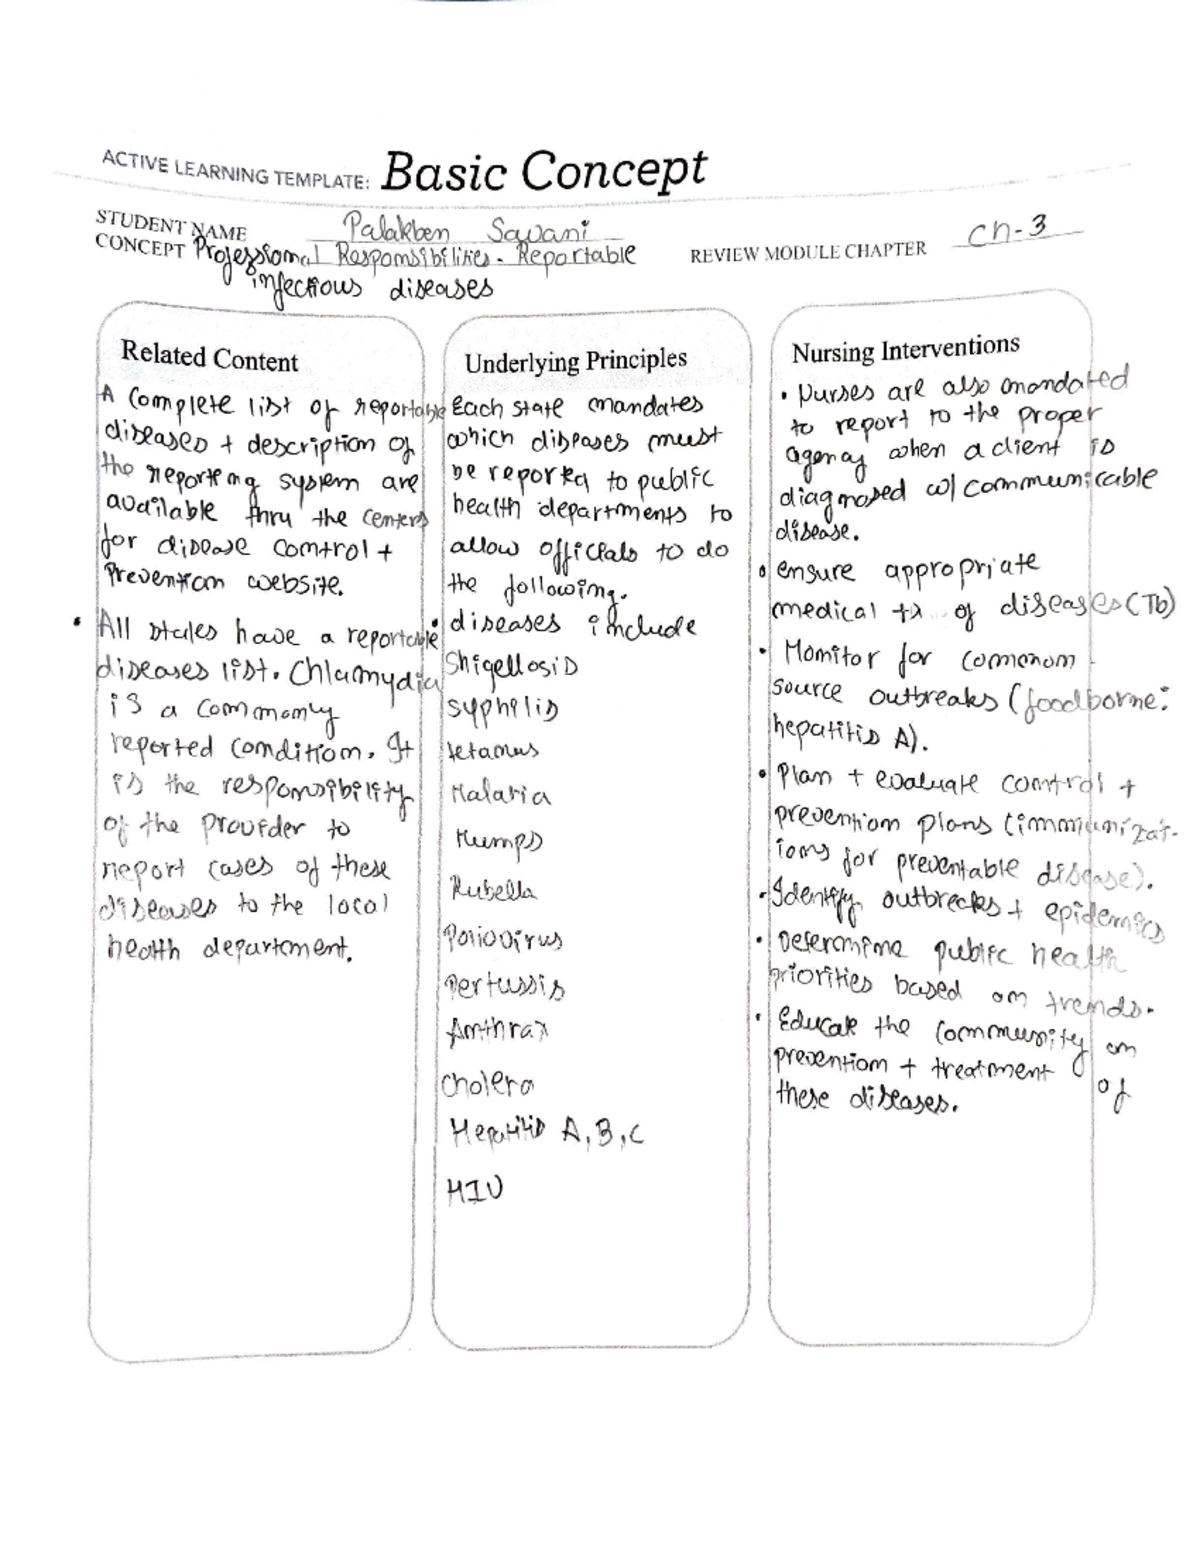 ACTIVE LEARNING TEMPLATE: Basic Concept
STUDENT NAME Palakben Savani
CONCEPT Professional Responsibilities - Reportable
infectious diseases
REVIEW MODULE CHAPTER Ch-3
Related Content
A complete list of reportable
diseases + description of
the reporting system are
available thru the centers
for disease control +
Prevention website.
• All states have a reportable
diseases list. Chlamydia
is a commonly
reported condition. It
is the responsibility
of the provider to
report cases of these
diseases to the local
health department.
Underlying Principles
Each state mandates
which diseases must
be reported to public
health departments to
allow officials to do
the following.
• diseases include
Shigellosis
syphilis
tetanus
Malaria
Mumps
Rubella
Poliovirus
Pertussis
Anthrax
cholera
Hepatitis A, B, C
HIV
Nursing Interventions
• Nurses are also mandated
to report to the proper
agency when a client is
diagnosed w/ communicable
disease.
• ensure appropriate
medical tx of diseases (Tb)
• Monitor for common
source outbreaks (foodborne:
hepatitis A).
• Plan + evaluate control +
prevention plans (immunizat-
ions for preventable disease).
• Identify outbreaks + epidemics
• Determine public health
priorities based on trends.
• Educate the community on
prevention + treatment of
these diseases.